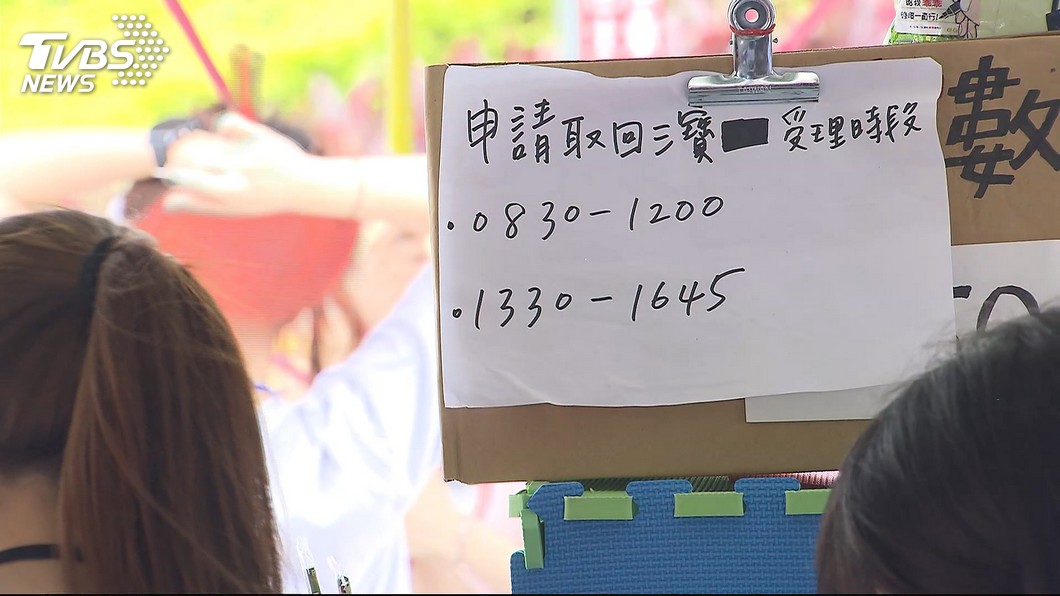 TVBS
NEWS
申請取回三寶 受理時段
.0830-1200
.1330-1645
數
50
TAIWAN